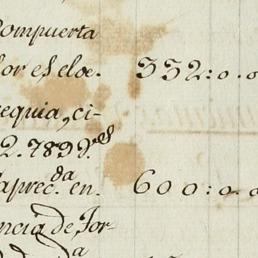 Compuerta
lor el eloe. 332:0.0
equia, ci-
2.7899.rs
aprec.da en 600:0.0
ncia de Jor-